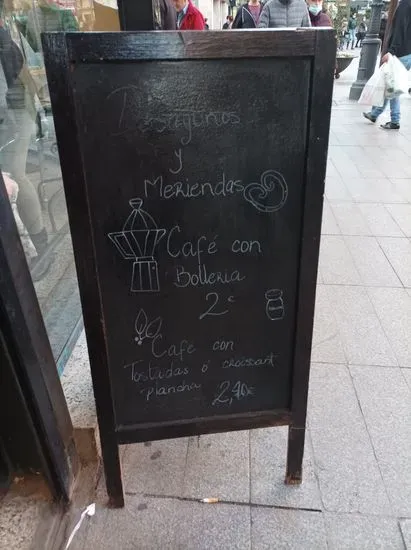 Desayunos
y
Meriendas
Café con
Bolleria
2€
Café con
Tostadas ó croissant
plancha
2,40€